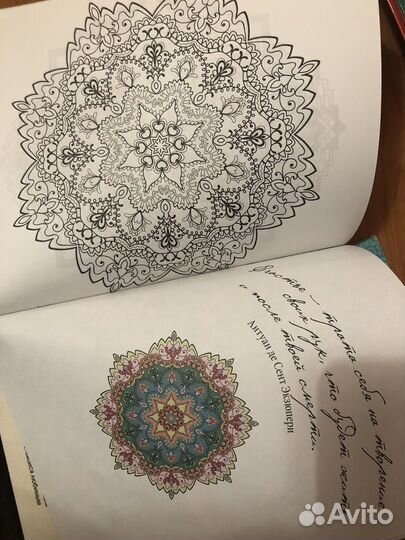 Счастье – трать себя на творение
своих рук, что будет жить
и после твоей смерти.
Антуан де Сент Экзюпери
любимым
Avito